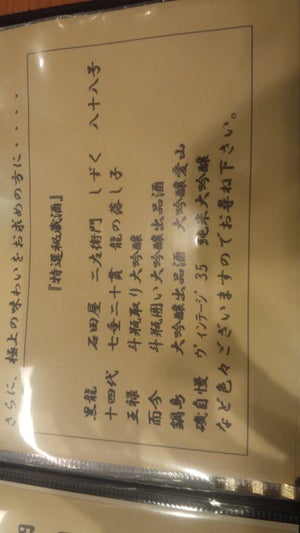 さらに、極上の味わいをお求めの方に・・・・
『特選秘蔵酒』
黒龍　石田屋　二左衛門　しずく　八十八号
十四代　七垂二十貫　龍の落し子
王禄　斗瓶取り大吟醸
而今　斗瓶囲い大吟醸出品酒
鍋島　大吟醸出品酒　大吟醸愛山
磯自慢　ヴィンテージ　35　純米大吟醸
など色々ございますのでお尋ね下さい。